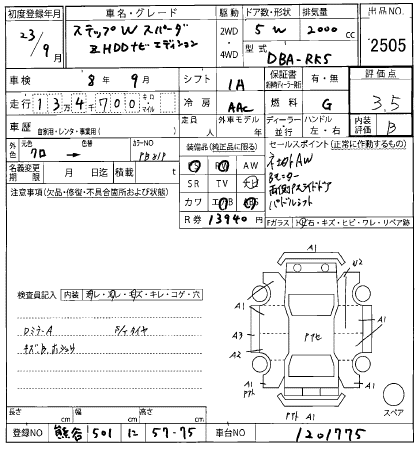 初度登録年月 車名・グレード 駆動 ドア数・形状 排気量 出品NO.
23/9月 ステップW スパーダ 2WD・4WD 5 W 2000cc 2505
Z HDDナビ エディション 型式 DBA-RK5
車検 8年 9月 シフト IA 保証書 有・無 評価点
走行 134700 キロ マイル 冷房 AAC 燃料 G 3.5
車歴 自家用・レンタ・事業用( ) 定員 人 外車モデル年式 年 ディーラー 並行 ハンドル 左・右 内装評価 B
外色 元色 クロ → 色替 カラーNO 装備品(純正品に限る) セールスポイント(正常に作動するもの)
名義変更期限 月 日迄 積載 t
PS PW AW
SR TV ナビ
カワ エアB ABS
R券 13940円
注意事項(欠品・修復・不具合箇所および状態)
Bモニター
両側Pスライドドア
パドルシフト
Fガラス トビ石・キズ・ヒビ・ワレ・リペア跡
検査員記入 内装 ヨゴレ・スレ・キズ・キレ・コゲ・穴
DミラーA
A1
U2
A1 A1
A3
A2 A1
A1
A1
スペア
長さ cm 幅 cm 高さ cm
登録NO 熊谷 501 に 57-75 車台NO 1201775